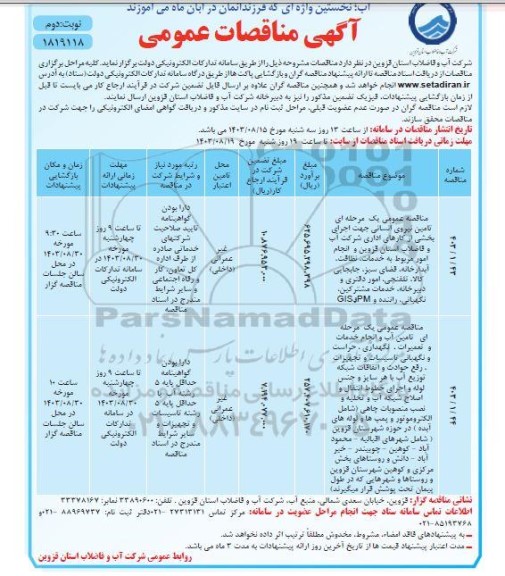 آب؛ نخستین واژه ای که فرزندانمان در آبان ماه می آموزند
نوبت:دوم
۱۸۱۹۱۱۸
آگهی مناقصات عمومی
شرکت آب و فاضلاب استان قزوین در نظر دارد مناقصات مشروحه ذیل را از طریق سامانه تدارکات الکترونیکی دولت برگزار نماید. کلیه مراحل برگزاری
مناقصات از دریافت اسناد مناقصه تا ارائه پیشنهاد مناقصه گران و بازگشایی پاکت ها از طریق درگاه سامانه تدارکات الکترونیکی دولت (ستاد) به آدرس
www.setadiran.ir انجام خواهد شد و همچنین مناقصه گران علاوه بر ارسال فایل تضمین شرکت در فرآیند ارجاع کار می بایست تا قبل
از زمان بازگشایی پیشنهادات، فیزیک تضمین مذکور را نیز به دبیرخانه شرکت آب و فاضلاب استان قزوین ارسال نمایند.
لازم است مناقصه گران در صورت عدم عضویت قبلی، مراحل ثبت نام در سایت مذکور و دریافت گواهی امضای الکترونیکی را جهت شرکت در
مناقصات محقق سازند.
تاریخ انتشار مناقصات در سامانه: از ساعت ۱۳ روز سه شنبه مورخ ۱۴۰۳/۰۸/۱۵ می باشد.
مهلت زمانی دریافت اسناد مناقصات از سایت: تا ساعت ۱۹ روز شنبه مورخ ۱۴۰۳/۰۸/۱۹
شماره مناقصه
موضوع مناقصه
مبلغ برآورد (ریال)
مبلغ تضمین شرکت در فرآیند ارجاع کار(ریال)
محل تامین اعتبار
رتبه مورد نیاز و شرایط شرکت در مناقصه
مهلت زمانی ارائه پیشنهادات
زمان و مکان بازگشایی پیشنهادات
مناقصه عمومی یک مرحله ای
تامین نیروی انسانی جهت اجرای
بخشی از کارهای اداری شرکت آب
و فاضلاب استان قزوین و انجام
امور مربوط به خدمات نظافت،
آبدارخانه، فضای سبز، جابجایی
کالا، تلفنچی، امور دفتری و
دبیرخانه، خدمات مشترکین،
نگهبانی، راننده و PM و GIS
غیر عمرانی (داخلی)
دارا بودن گواهینامه تایید صلاحیت شرکتهای خدماتی صادره از طرف اداره کل تعاون، کار و رفاه اجتماعی و سایر شرایط مندرج در اسناد مناقصه
تا ساعت ۹ روز چهارشنبه مورخه ۱۴۰۳/۰۸/۳۰ در سامانه تدارکات الکترونیکی دولت
ساعت ۹:۳۰ مورخه ۱۴۰۳/۰۸/۳۰ در محل سالن جلسات مناقصه گزار
مناقصه عمومی یک مرحله
ای تامین آب و انجام خدمات
و تعمیرات ، نگهداری ، حراست
و نگهبانی تاسیسات و تجهیزات
، رفع حوادث و اتفاقات شبکه
توزیع آب با هر سایز و جنس
لوله و اجرای خطوط انتقال و
اصلاح شبکه آب و تخلیه و
نصب منصوبات چاهی (شامل
الکتروموتور و پمپ ها و لوله های
آبده ) در حوزه شهرستان قزوین
( شامل شهرهای اقبالیه - محمود
آباد - کوهین - چوبیندر - خیر
آباد - دانش و روستاهای بخش
مرکزی و کوهین شهرستان قزوین
و روستاها و شهرهایی که در طول
پیمان تحت پوشش قرار میگیرند)
غیر عمرانی (داخلی)
دارا بودن گواهینامه حداقل پایه ۵ رشته آب و حداقل پایه ۵ رشته تاسیسات و تجهیزات و سایر شرایط مندرج در اسناد مناقصه
تا ساعت ۹ روز چهارشنبه مورخه ۱۴۰۳/۰۸/۳۰ در سامانه تدارکات الکترونیکی دولت
ساعت ۱۰ مورخه ۱۴۰۳/۰۸/۳۰ در محل سالن جلسات مناقصه گزار
ParsNamadData
نشانی مناقصه گزار: قزوین، خیابان سعدی شمالی، منبع آب، شرکت آب و فاضلاب استان قزوین . تلفن: ۳۳۸۹۰۶۰۰ نمابر: ۳۳۳۷۸۱۶۷
اطلاعات تماس سامانه ستاد جهت انجام مراحل عضویت در سامانه: مرکز تماس ۲۷۳۱۳۱۳۱-۰۲۱ دفتر ثبت نام: ۸۸۹۶۹۷۳۷-۰۲۱ و
۰۲۱-۸۵۱۹۳۷۶۸
به پیشنهادهای فاقد امضاء، مشروط، مخدوش مطلقاً ترتیب اثر داده نخواهد شد.
مدت اعتبار پیشنهاد قیمت ها از تاریخ آخرین روز ارائه پیشنهادات به مدت ۳ ماه می باشد.
روابط عمومی شرکت آب و فاضلاب استان قزوین